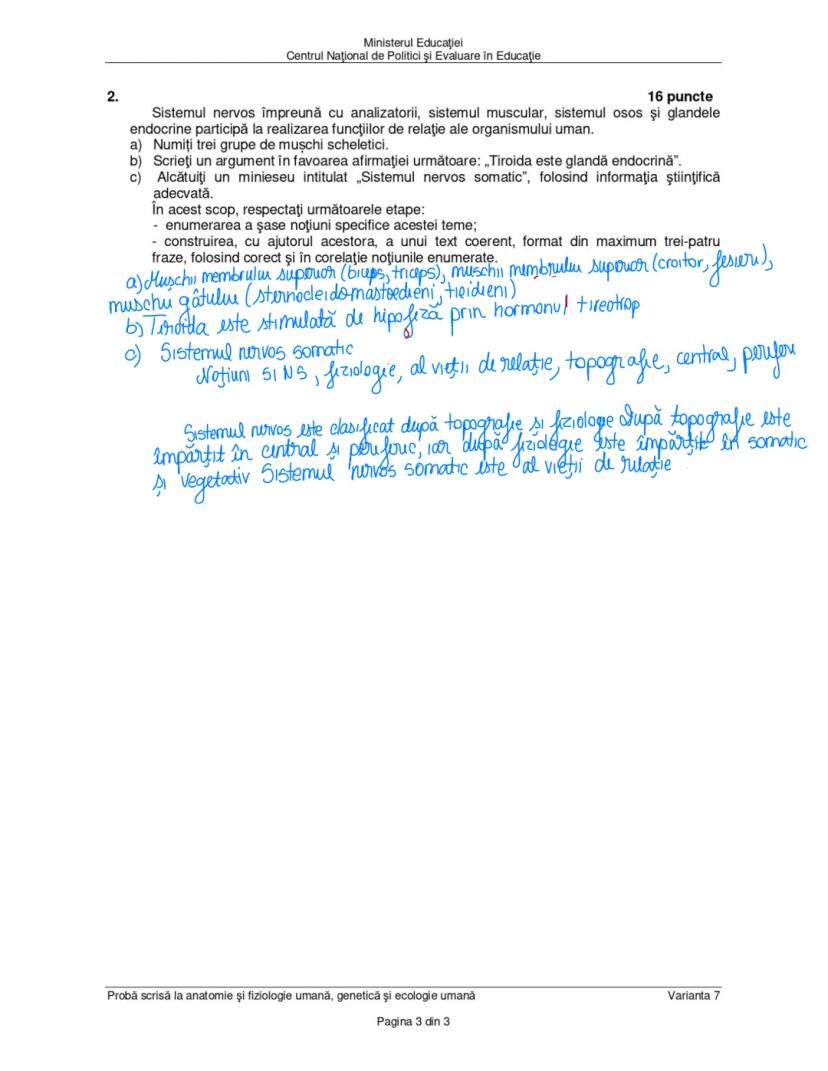 Ministerul Educaţiei
Centrul Naţional de Politici şi Evaluare în Educaţie
2. 16 puncte
Sistemul nervos împreună cu analizatorii, sistemul muscular, sistemul osos şi glandele
endocrine participă la realizarea funcţiilor de relaţie ale organismului uman.
a) Numiţi trei grupe de muşchi scheletici.
b) Scrieţi un argument în favoarea afirmaţiei următoare: „Tiroida este glandă endocrină”.
c) Alcătuiţi un minieseu intitulat „Sistemul nervos somatic”, folosind informaţia ştiinţifică
adecvată.
În acest scop, respectaţi următoarele etape:
- enumerarea a şase noţiuni specifice acestei teme;
- construirea, cu ajutorul acestora, a unui text coerent, format din maximum trei-patru
fraze, folosind corect şi în corelaţie noţiunile enumerate.
a) Muşchii membrului superior (biceps, triceps), muschii membrului superior (croitor, fesieri),
muschii gâtului (sternocleidomastoedieni, tioidieni)
b) Tiroida este stimulată de hipofiză prin hormonul tireotrop
c) Sistemul nervos somatic
Noţiuni SI NS, fiziologie, al vieţii de relaţie, topografie, central, periferic
Sistemul nervos este clasificat după topografie si fiziologie După topografie este
împărţit în central şi periferic, iar după fiziologie este împărţit în somatic
şi vegetativ Sistemul nervos somatic este al vieţii de relaţie
Probă scrisă la anatomie şi fiziologie umană, genetică şi ecologie umană Varianta 7
Pagina 3 din 3